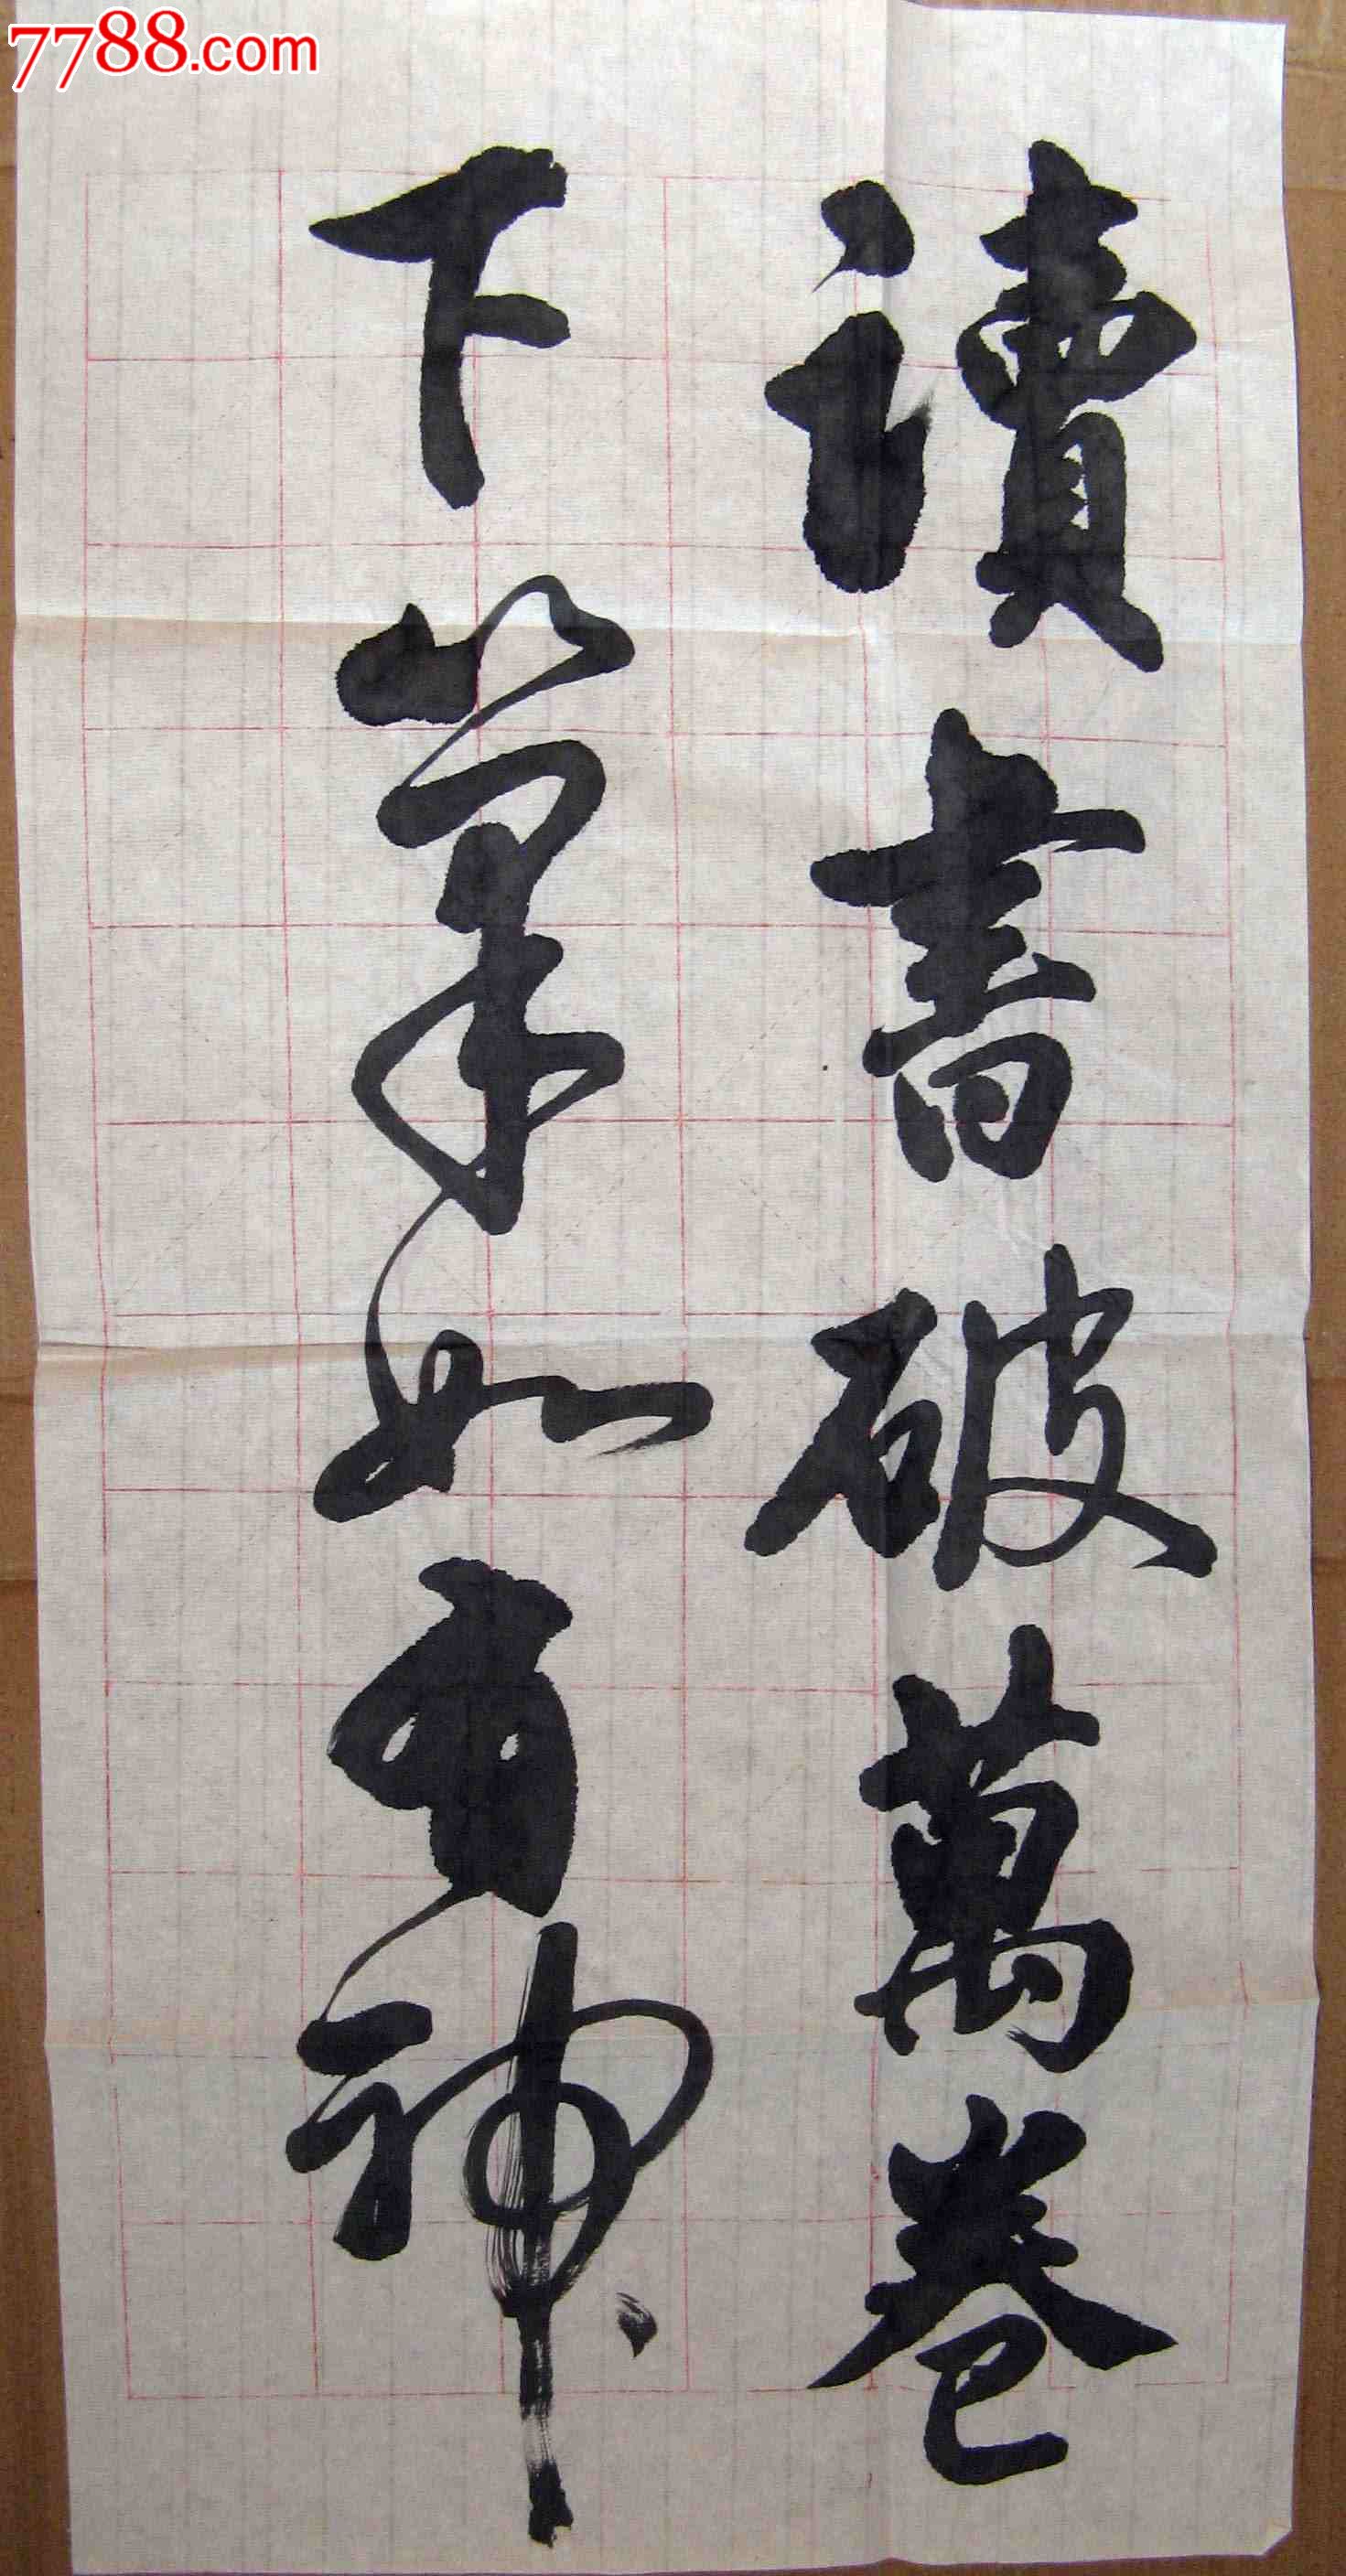 7788.com
讀書破萬卷
下筆如有神